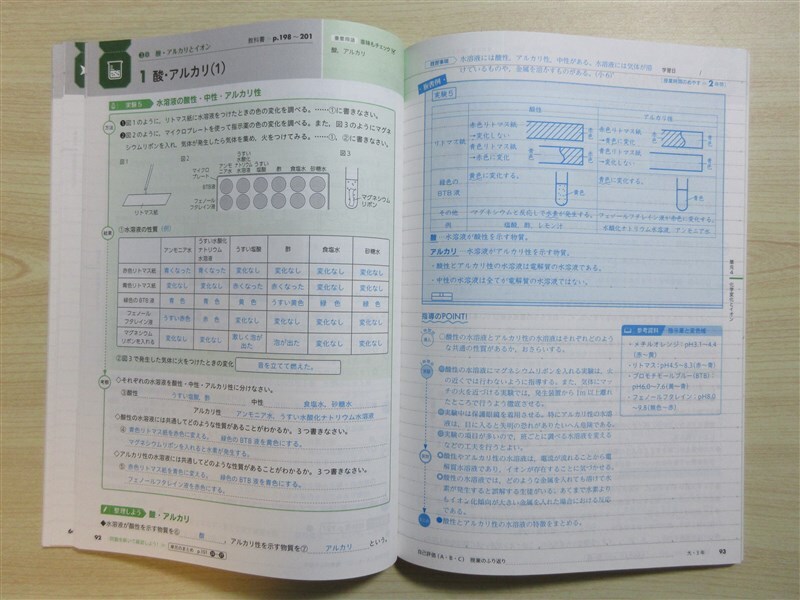 酸・アルカリとイオン
教科書 p.198～201
酸、アルカリ
1 酸・アルカリ(1)
実験5 水溶液の酸性・中性・アルカリ性
方法
❶図1のように、リトマス紙に水溶液をつけたときの色の変化を調べる。……①に書きなさい。
❷図2のように、マイクロプレートを使って指示薬の色の変化を調べる。また、図3のようにマグネ
シウムリボンを入れ、気体が発生したら気体を集め、火をつけてみる。……①、②に書きなさい。
図1
リトマス紙
図2
マイクロプレート
アンモニア水
うすい水酸化ナトリウム
うすい塩酸
酢
食塩水
砂糖水
BTB液
フェノールフタレイン液
図3
マグネシウムリボン
結果
①水溶液の性質(例)
アンモニア水 うすい水酸化ナトリウム水溶液 うすい塩酸 酢 食塩水 砂糖水
赤色リトマス紙 青くなった 青くなった 変化なし 変化なし 変化なし 変化なし
青色リトマス紙 変化なし 変化なし 赤くなった 赤くなった 変化なし 変化なし
緑色のBTB液 青色 青色 黄色 うすい黄色 緑色 緑色
フェノールフタレイン液 うすい赤色 赤色 変化なし 変化なし 変化なし 変化なし
マグネシウムリボンを入れる 変化なし 変化なし 激しく泡が出た 泡が出た 変化なし 変化なし
②図3で発生した気体に火をつけたときの変化 音を立てて燃えた。
考察
◇それぞれの水溶液を酸性・中性・アルカリ性に分けなさい。
③酸性 うすい塩酸、酢 中性 食塩水、砂糖水
アルカリ性 アンモニア水、うすい水酸化ナトリウム水溶液
◇酸性の水溶液には共通してどのような性質があることがわかるか。3つ書きなさい。
④ 青色リトマス紙を赤色に変える。 緑色のBTB液を黄色にする。
マグネシウムリボンを入れると水素が発生する。
◇アルカリ性の水溶液には共通してどのような性質があることがわかるか。3つ書きなさい。
⑤ 赤色リトマス紙を青色に変える。 緑色のBTB液を青色にする。
フェノールフタレイン液を赤色にする。
整理しよう 酸・アルカリ
◆水溶液が酸性を示す物質を⑥ 酸 、アルカリ性を示す物質を⑦ アルカリ という。
92
水溶液には酸性、アルカリ性、中性がある。水溶液には気体が溶
けているものや、金属を溶かすものがある。(小6)
学習日
板書例
実験5
酸性
アルカリ性
リトマス紙
赤色リトマス紙
→変化しない
青色リトマス紙
→赤色に変化
赤色リトマス紙
→青色に変化
青色リトマス紙
→変化しない
緑色の
BTB液
黄色に変化する。
黄色
青色に変化する。
青色
その他 マグネシウムと反応して水素が発生する。 フェノールフタレイン液が赤色に変化する。
例 塩酸、酢、レモン汁
酸 水溶液が酸性を示す物質。
アルカリ 水溶液がアルカリ性を示す物質。
・酸性とアルカリ性の水溶液は電解質の水溶液である。
・中性の水溶液は全てが電解質の水溶液ではない。
単元4 化学変化とイオン
指導のPOINT!
酸性の水溶液とアルカリ性の水溶液はそれぞれどのよう
な共通の性質があるか、おさらいする。
酸性の水溶液にマグネシウムリボンを入れる実験は、火
の近くでは行わないように指導する。また、気体にマッ
チの火を近づける実験では、発生装置から1m以上離れ
たところで行うよう徹底させる。
実験中は保護眼鏡を着用させる。特にアルカリ性の水溶
液は、目に入ると失明の恐れがありたいへん危険である。
実験の項目が多いので、班ごとに調べる水溶液を変える
などの工夫を行うとよい。
酸性やアルカリ性の水溶液は、電流が流れることから電
解質水溶液であり、イオンが存在することに気づかせる。
酸性の水溶液では、どのような金属を入れても溶けて水
素が発生すると誤解する生徒がいる。あくまで水素より
もイオン化傾向が大きい金属を入れた場合における反応
である。
●酸性とアルカリ性の水溶液の特徴をまとめる。
参考資料 指示薬と変色域
・メチルオレンジ:pH3.1～4.4
(赤～黄)
・リトマス:pH4.5～8.3(赤～青)
・ブロモチモールブルー(BTB):
pH6.0～7.6(黄～青)
・フェノールフタレイン:pH8.0
～9.8(無色～赤)
自己評価(A・B・C) 授業のふり返り
93